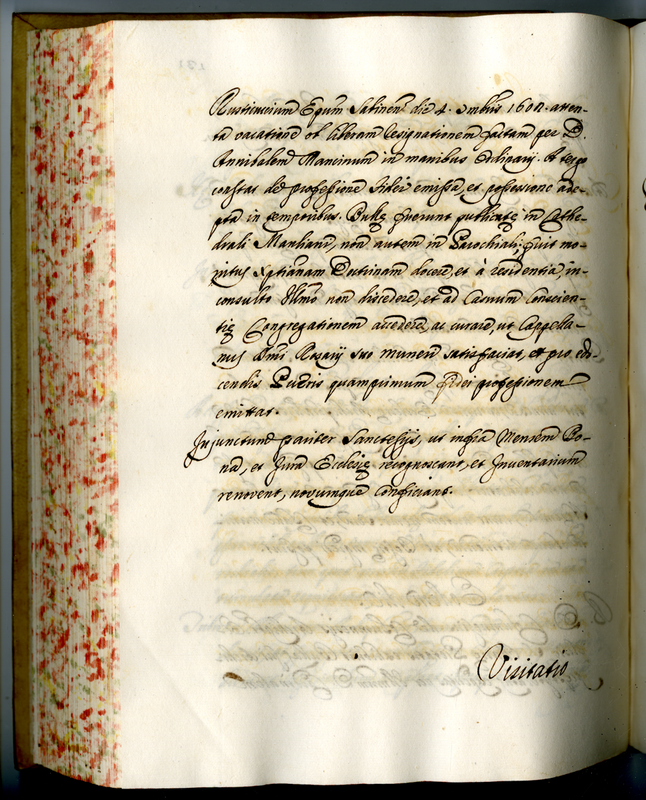 Rusticucium Epũm Sabinen̄ die 4. Xmbris 1602. atten-
ta vacatione ob liberam resignationem factam per D.
Annibalem Mancinum in manibus Ordinarij. A tergo
constat de professione fidei emissa, et possessione ade-
pta in temporibus. Bullę fuerunt publicatę in Cathe-
drali Manliana, non autem in Parochiali; fuit mo-
nitus xptianam Doctrinam docere, et à residentia, in-
consulto Illmo non discedere, et ad Casuum Conscien-
tię Congregationem accedere, ac curare, ut Cappella-
nus Smi Rosarij suo muneri satisfaciat, et pro edo-
cendis Pueris quamprimum fidei professionem
emittat.
Injunctum pariter Sanctesijs, ut infra Mensem Bo-
na, et Jura Ecclesię recognoscant, et Inventarium
renovent, novumque conficiant.
Visitatio